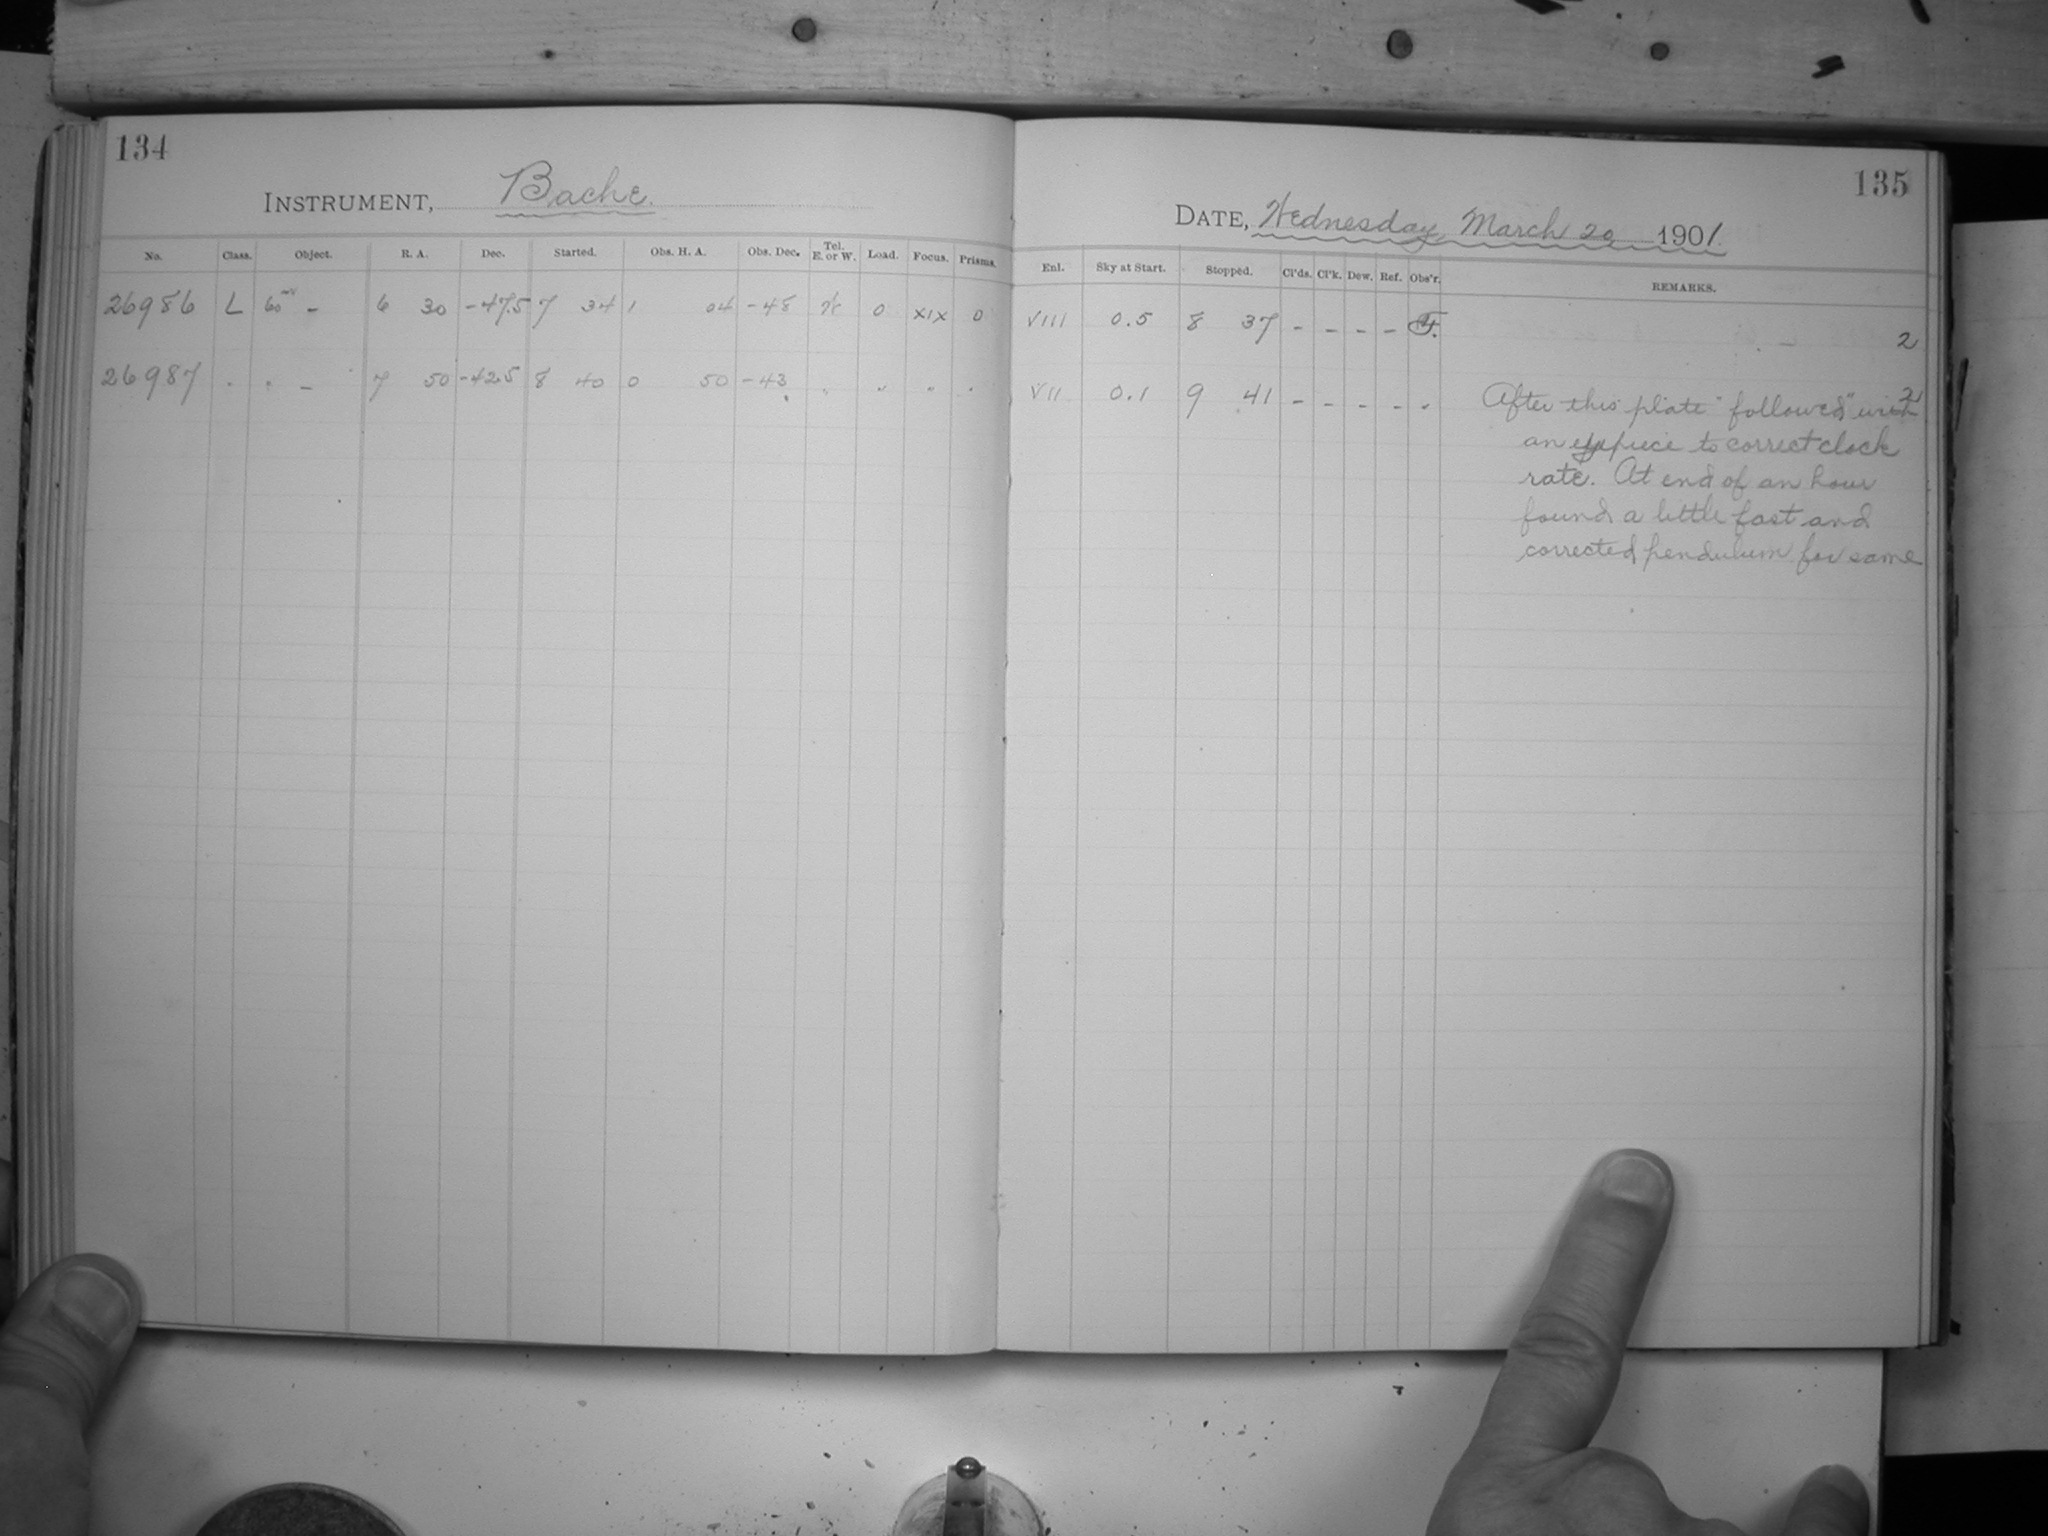 134
INSTRUMENT, Bache.
No. Class. Object. R. A. Dec. Started. Obs. H. A. Obs. Dec. Tel. E. or W. Load. Focus. Prisms.
26986 L 60 – 6 30 -47.5 7 34 1 04 -48 0 XIX 0
26987 " " – 7 50 -42.5 8 40 0 50 -43 " " " "
135
DATE, Wednesday, March 20 1901.
Enl. Sky at Start. Stopped. Cl'ds. Cl'k. Dew. Ref. Obs'r. REMARKS.
VIII 0.5 8 37 – – – – 2
VII 0.1 9 41 – – – – " 2
After this plate "followed" with
an eyepiece to correct clock
rate. At end of an hour
found a little fast and
corrected pendulum for same